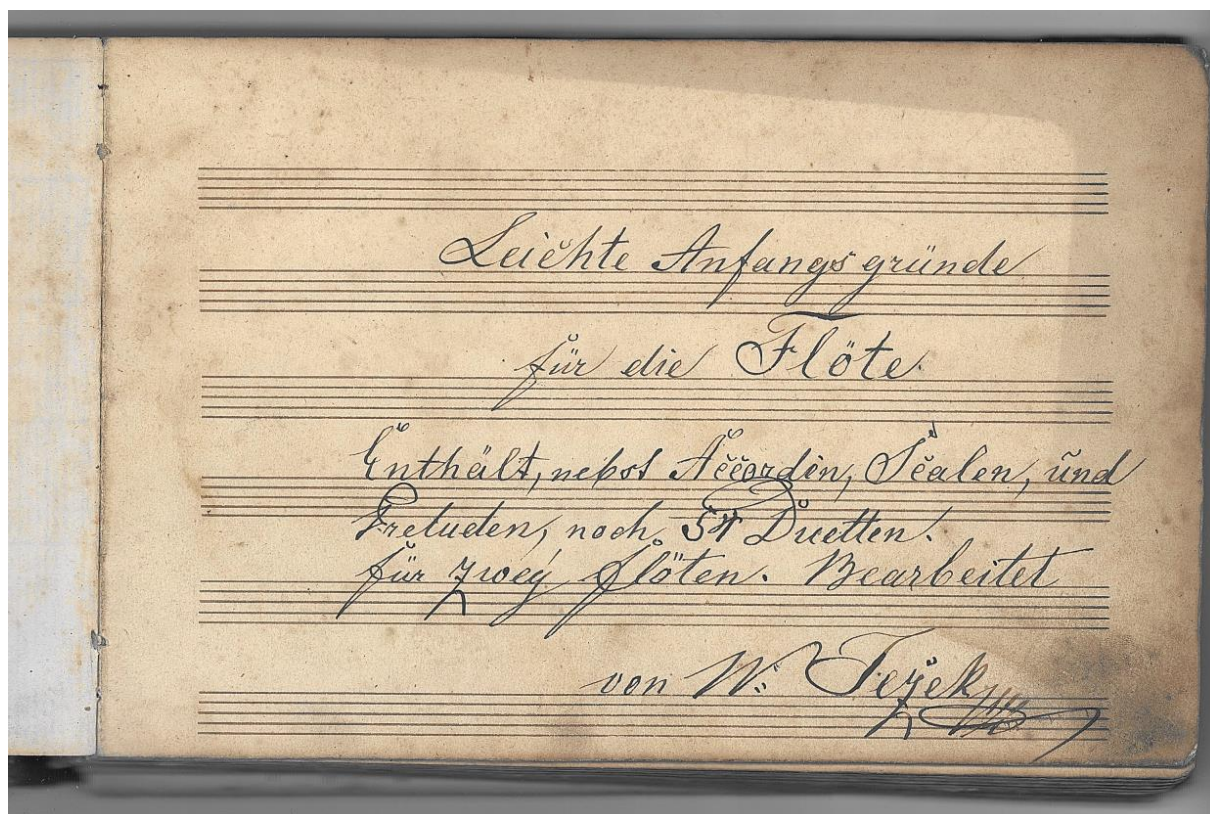 Leichte Anfangsgründe
für die Flöte.
Enthält, nebst Accorden, Scalen, und
Preluden, noch 54 Duetten.
für zwey flöten. Bearbeitet
von W. Ježek